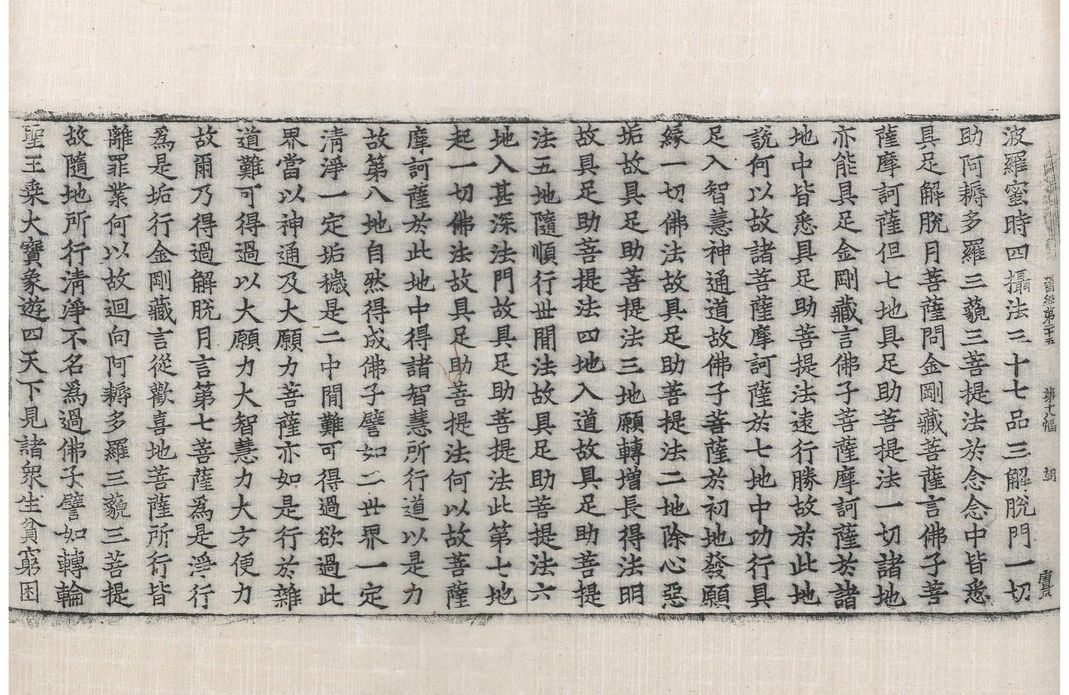 晉經第二十五　第十幅
波羅蜜時四攝法三十七品三解脫門一切
助阿耨多羅三藐三菩提法於念念中皆悉
具足解脫月菩薩問金剛藏菩薩言佛子菩
薩摩訶薩但七地具足助菩提法一切諸地
亦能具足金剛藏言佛子菩薩摩訶薩於諸
地中皆悉具足助菩提法遠行勝故於此地
說何以故諸菩薩摩訶薩於七地中功行具
足入智慧神通道故佛子菩薩於初地發願
緣一切佛法故具足助菩提法二地除心惡
垢故具足助菩提法三地願轉增長得法明
故具足助菩提法四地入道故具足助菩提
法五地隨順行世間法故具足助菩提法六
地入甚深法門故具足助菩提法此第七地
起一切佛法故具足助菩提法何以故菩薩
摩訶薩於此地中得諸智慧所行道以是力
故第八地自然得成佛子譬如二世界一定
清淨一定垢穢是二中間難可得過欲過此
界當以神通及大願力菩薩亦如是行於雜
道難可得過以大願力大智慧力大方便力
故爾乃得過解脫月言第七菩薩爲是淨行
爲是垢行金剛藏言從歡喜地菩薩所行皆
離罪業何以故迴向阿耨多羅三藐三菩提
故隨地所行清淨不名爲過佛子譬如轉輪
聖王乘大寶象遊四天下見諸衆生貧窮困